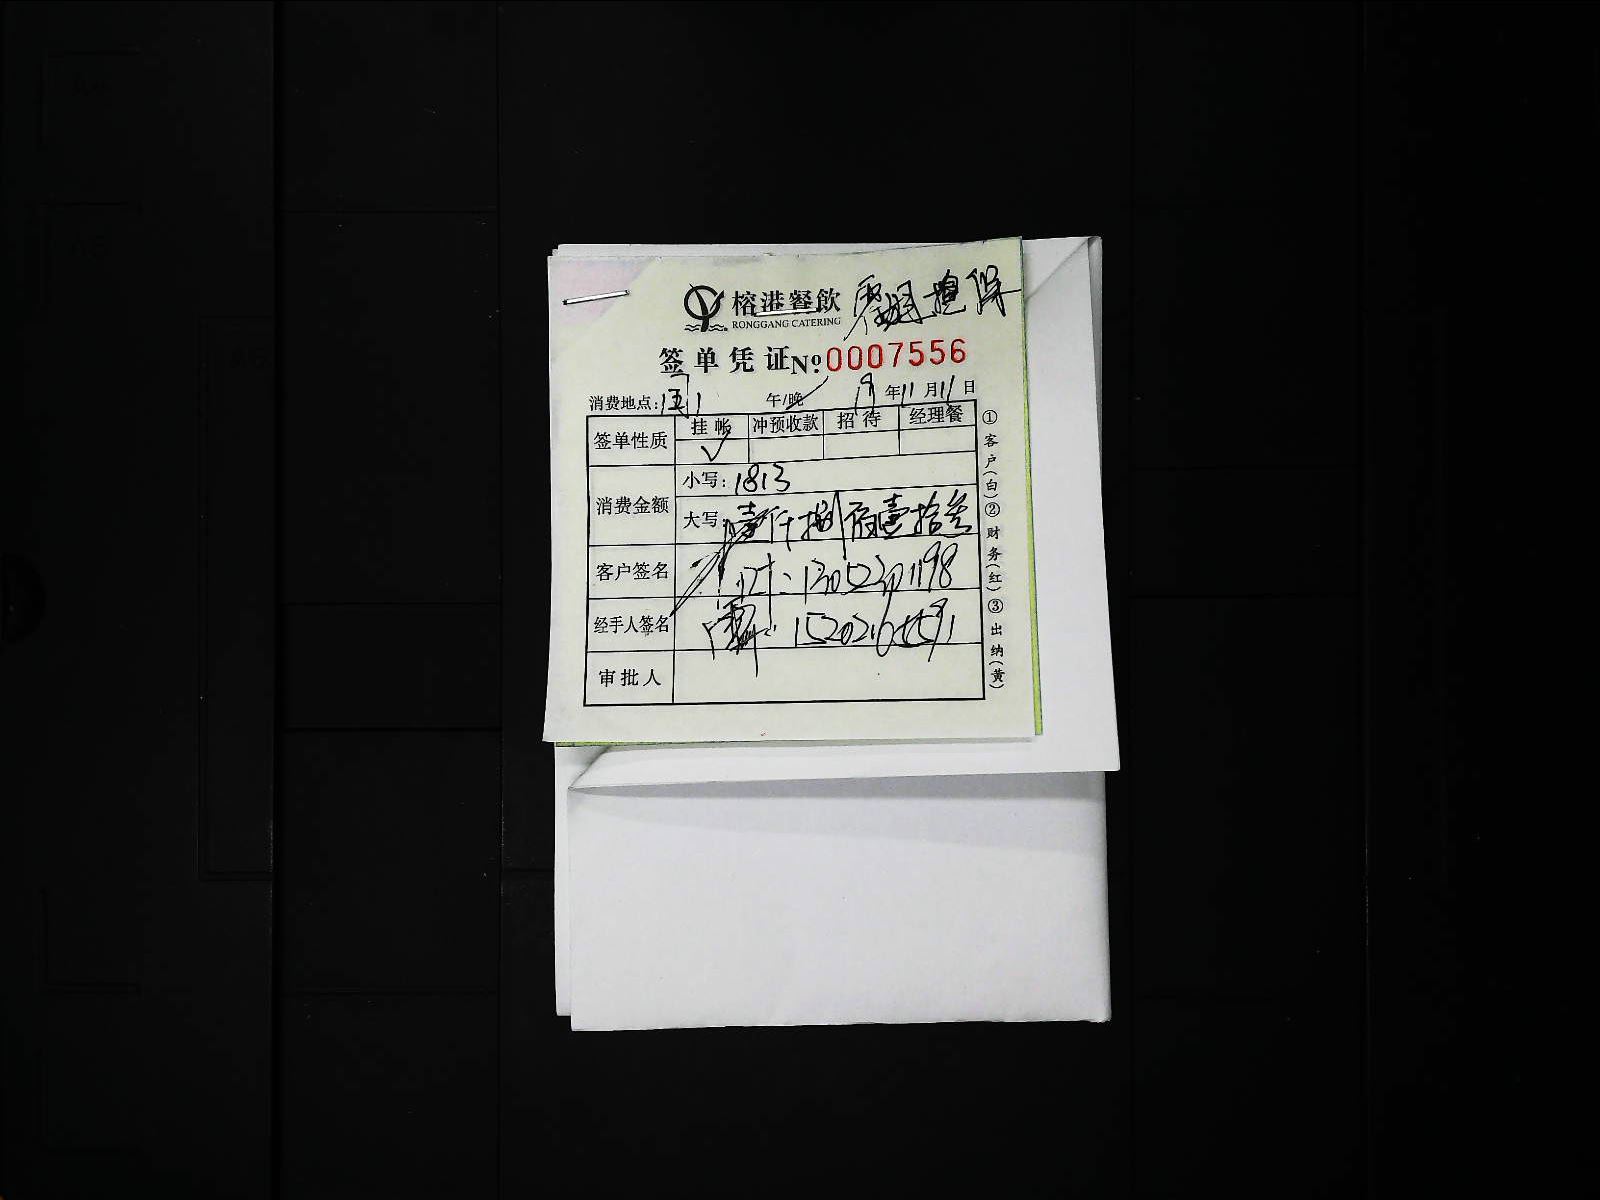 榕港餐飲 担保
RONGGANG CATERING
签单凭证 No 0007556
消费地点: 午/晚 19年11月11日
签单性质 挂帐 冲预收款 招待 经理餐
✓
消费金额 小写: 1813
大写: 壹仟捌佰壹拾叁
客户签名
经手人签名
审批人
①客户(白)②财务(红)③出纳(黄)